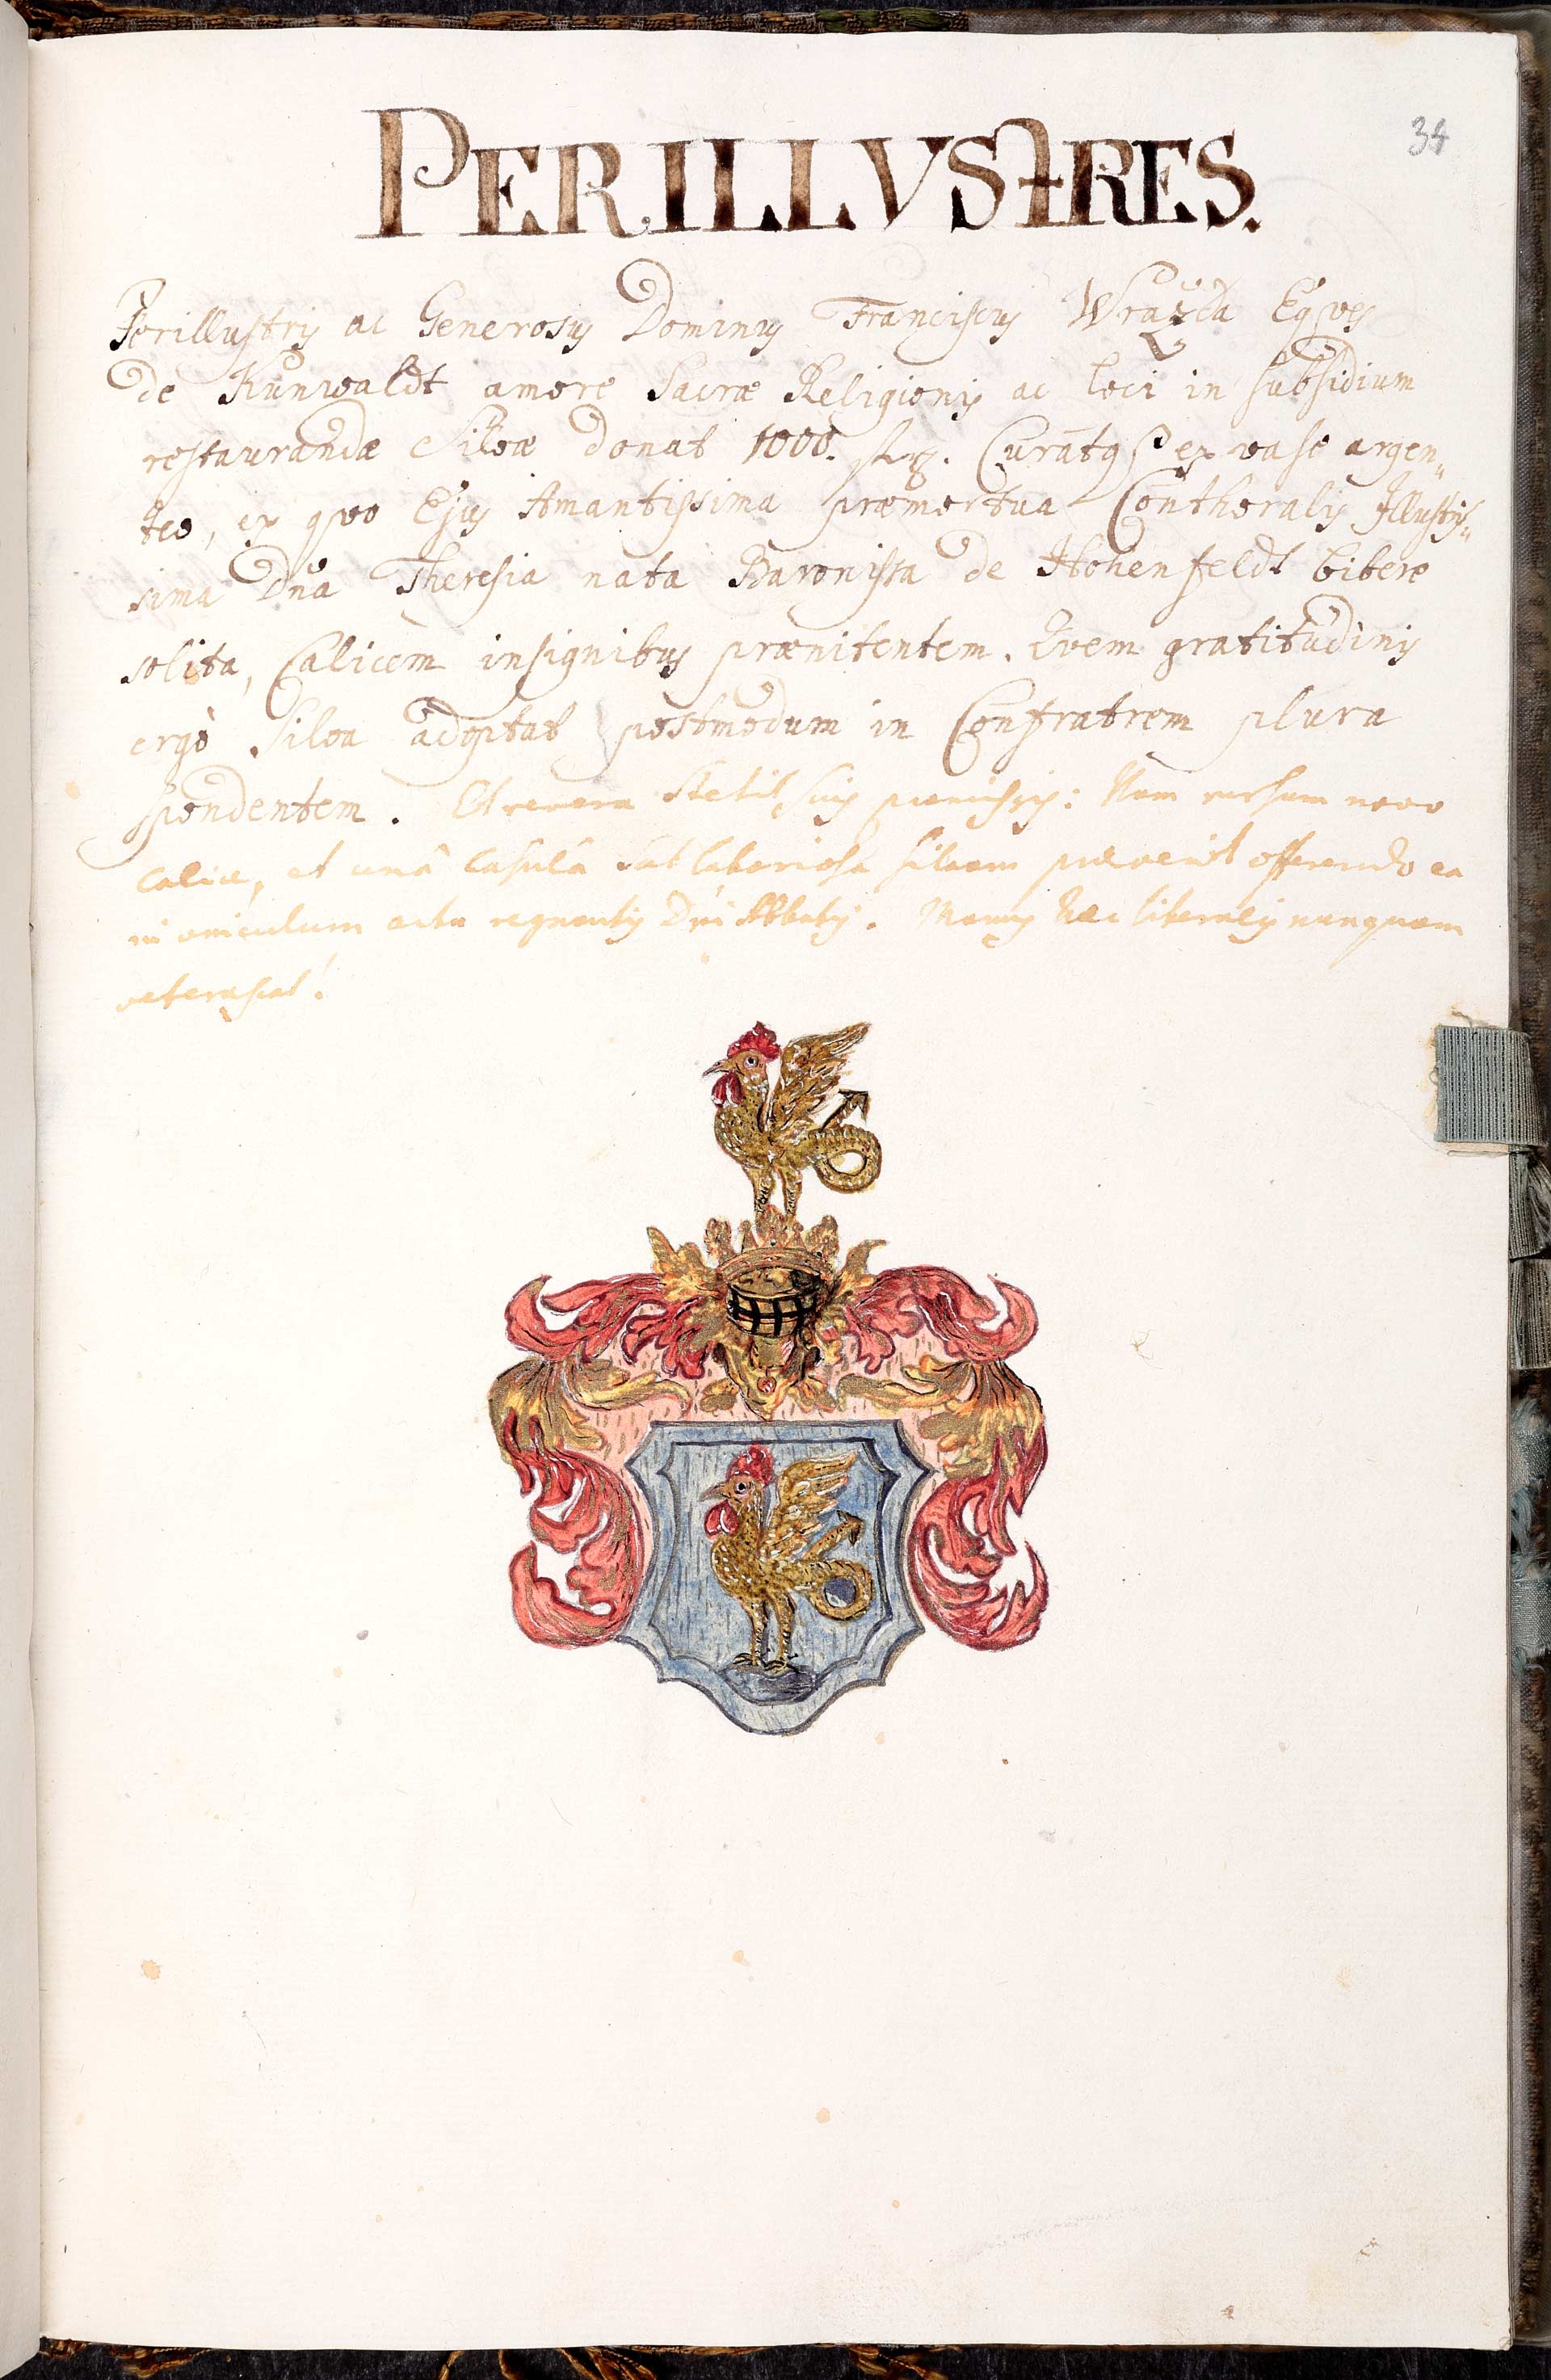 34
PERILLVSTRES.
Perillustris ac Generosus Dominus Franciscus Wražda Eqves
de Kunwaldt amore Sacræ Religionis ac loci in subsidium
restaurandæ Siloæ donat 1000. Curatq ex vase argen„
teo, ex qvo Ejus Amantissima præmortua Conthoralis Illustris„
sima Dna Theresia nata Baronissa de Hohenfeldt bibere
solita, Calicem insignibus prænitentem. Qvem gratitudinis
ergò Siloa adoptat postmodum in Confratrem plura
spondentem. Et revera stetit suis promissis: Nam rursum novo
calice, et unâ Casulâ sat laboriosa siloam prævenit offerendo ea
in vinculum actu regnantis Dni Abbatis. Manus hæc liberalis nunquam
veterascat!